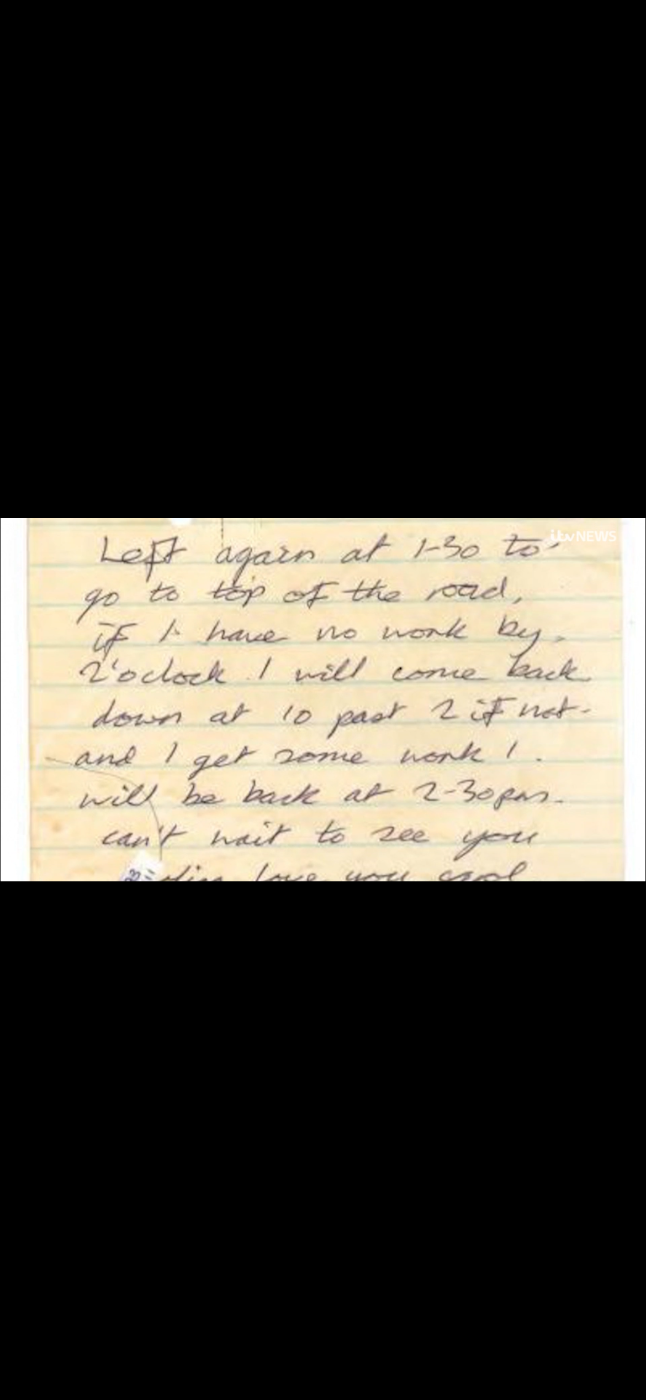 itv NEWS
Left again at 1-30 to
go to top of the road,
if I have no work by.
2'oclock I will come back
down at 10 past 2 if not.
and I get some work I.
will be back at 2-30pm.
can't wait to see you
love you carol